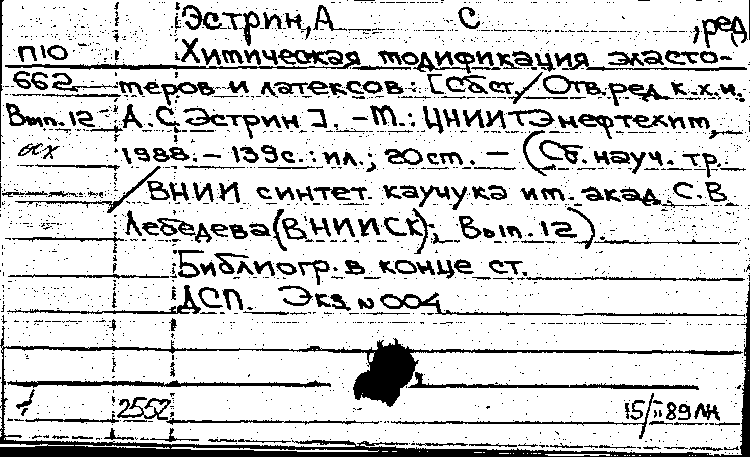 Эстрин, А С , ред
П10 Химическая модификация эласто-
662 меров и латексов: [Сб ст. / Отв. ред. к.х.н.
Вып. 12 А.С. Эстрин]. – М.: ЦНИИТЭнефтехим,
1988. – 139с.: ил.; 20 см. – (Сб. науч. тр.
/ ВНИИ синтет. каучука им. акад. С.В.
Лебедева (ВНИИСК); Вып. 12).
Библиогр. в конце ст.
ДСП. Экз. № 004.
2552 15/II 89 ЛН